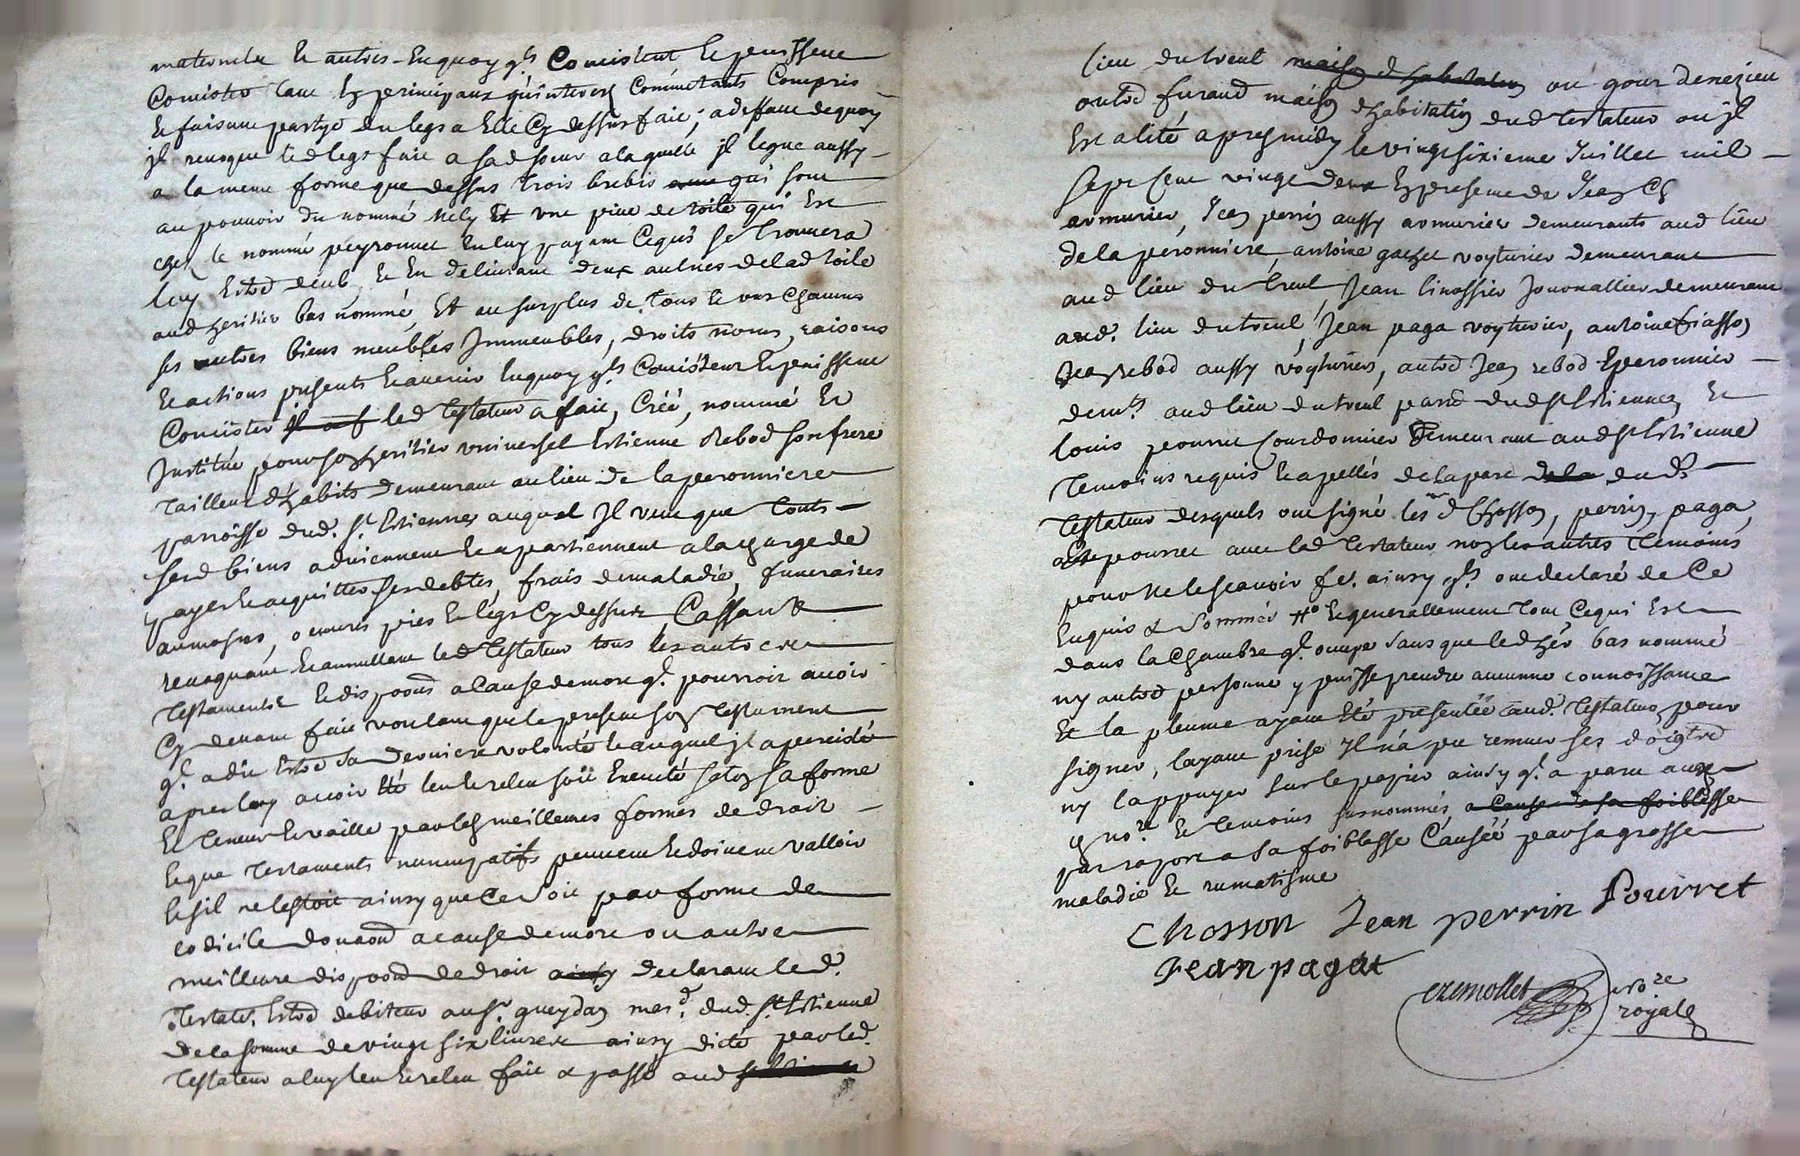 maternelx et autres En quoy qls Consistent Et puissent
Consister tant Es principaux qu'interets Comméttants Compris
Et faisant partye du legs a Elle Cy dessus fait, a deffaut de quoy
jl revoque led legs fait a sad soeur a laquelle jl legue aussy
a la meme forme que dessus trois brebis qui sont
au pouvoir du nommé nely Et une piece de toile qui Est
chez le nommé peyronnet En luy payant Cequi se trouvera
luy Estre deub, Et En delivrant deux aulnes de lad toile
aud heritier bas nommé, Et au surplus de tous Et uns Chacuns
ses autres biens meubles Jmmeubles, droits noms, raisons
Et actions presents Et avenir En quoy qls Consistent Et puissent
Consister led Testateur a fait, Créé, nommé Et
Justitué pour son heritier universel Estienne Rebod son frere
Tailleur d'habits demeurant au lieu de la peronniere
parroisse dud. St Estienne auquel Jl veut que touts
sesd biens adviennent Et apartiennent a la charge de
payer Et acquitter ses debtes, frais de maladie, funeraires
aumosnes, oeuvres pies Et legs Cy dessus, Cassant
revoquant Et annullant led Testateur tous les autres
Testaments Et dispoons a Cause de mort ql pourroit avoir
Cy devant fait voulant que le present son Testament
ql a dit Estre sa derniere volonté Et auquel jl a percisté
apres luy avoir Eté leu Et releu soit Executé selon sa forme
Et teneur Et vaille par les meilleures formes de droit
Et que Testaments nuncupatifs peuvent Et doivent valloir
Et sil ne lestoit ainsy que Ce soit par forme de
codicile donaon a cause de mort ou autre
meilleure dispoon de droit declarant led.
Testatr. Estre debiteur au sr. gueydan mard. dud. St Estienne
de la somme de vingt six livres ainsy dicté par led.
Testateur a luy leu Et releu fait & passé aud
lieu du treul ou gour de nezieu
outre furand maison d'habitation dud Testateur ou jl
Est alité apres midy le vingt sixieme Juillet mil
sept cent vingt deux En presence de Jean
armurier, Jean perrin aussy armurier demeurants aud lieu
de la peronniere, antoine gachet voyturier demeurant
aud lieu du treul, Jean linossier Journallier demeurant
aud. lieu du treul, Jean paga voyturier, antoine fiasson
Jean rebod aussy voyturiers, autre Jean rebod Eperonnier
demts aud lieu du treul parse dud St Estienne Et
louis pourret Cordonnier Demeurant aud St Estienne
temoins requis Et apellés de la part dud.
Testateur desquels ont signé lesd Chosson, perrin, paga
pourret avec led Testateur non les autres temoins
pour ne le scavoir fe. ainsy qls ont declaré de Ce
Enquis & Sommés Et generallement tout Cequi Est
dans la Chambre ql occupe sans que led her bas nommé
ny autre personne y puisse prendre aucune connoissance
Et la plume ayant Eté presentée aud. Testateur pour
signer, layant prise Jl n'a peu remuer ses doigts
ny lappuyer sur le papier ainsy ql a paru aux
nore Et temoins susnommés
par raport a sa foiblesse Causée par sa grosse
maladie Et rumatisme
Chosson Jean perrin Pourret
Jean pagat
ezemollet nore
royale